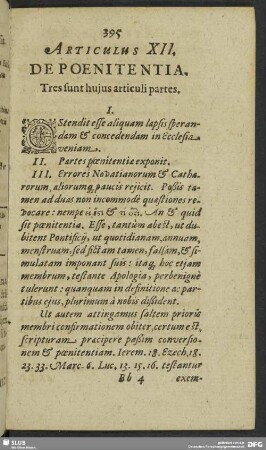 395
ARTICULUS XII.
DE POENITENTIA.
Tres sunt hujus articuli partes.
I.
OStendit esse aliquam lapsis speran-
dam & concedendam in Ecclesia
veniam.
II. Partes pœnitentiæ exponit.
III. Errores Novatianorum & Catha-
rorum, aliorumq; paucis rejicit. Possis ta-
men ad duas non incommodè quæstiones re-
vocare: nempe εἰ ἔςι & τί ἔςι. An & quid
sit pœnitentia. Esse, tantùm abest, ut du-
bitent Pontificij, ut quotidianam, annuam,
menstruam, sed fictam tamen, falsam, & si-
mulatam imponant suis: itaq; hoc etjam
membrum, testante Apologia, perbenignè
tulerunt: quanquam in definitione ac par-
tibus ejus, plurimùm à nobis dissident.
Ut autem attingamus saltem prioris
membri confirmationem obiter, certum est,
scripturam præcipere passim conversio-
nem & pœnitentiam. Ierem. 18. Ezech. 18.
23. 33. Marc. 6. Luc. 13. 15. 16. testantur
Bb 4 exem-
SLUB